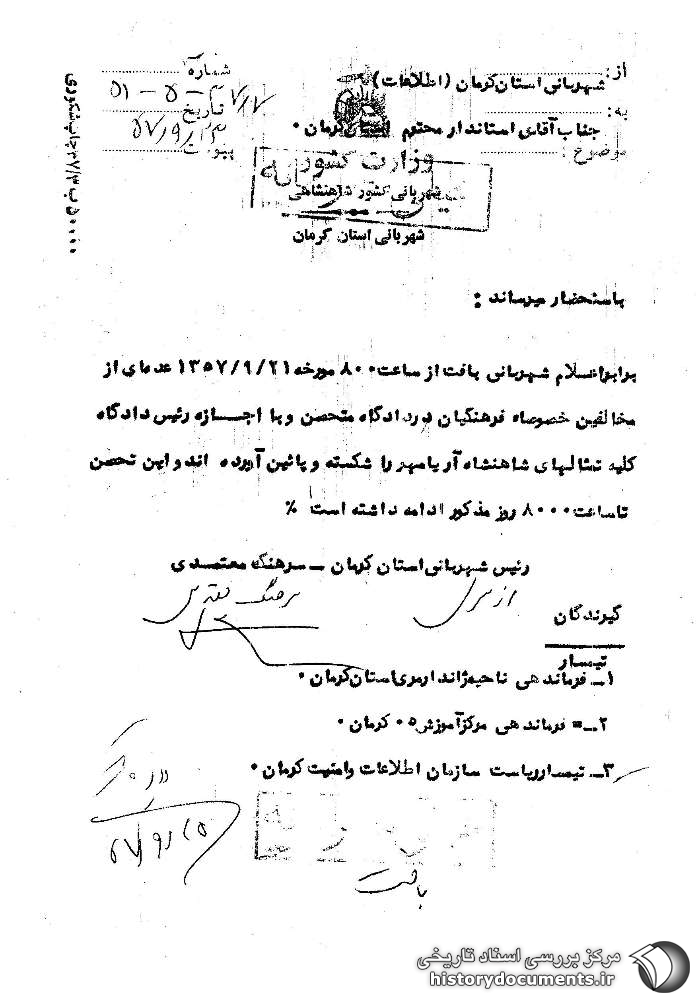 از: شهربانی استان کرمان (اطلاعات)
به: جناب آقای استاندار محترم استان کرمان ۰
موضوع :
شماره
تاریخ ۵۷/۹/۲۳
پیوست
وزارت کشور
شهربانی کشور شاهنشاهی
شهربانی استان کرمان
باستحضار میرساند :
برابر اعلام شهربانی بافت از ساعت ۸۰۰ مورخه ۱۳۵۷/۹/۲۱ عده‌ای از
مخالفین خصوصاً فرهنگیان در دادگاه متحصن و با اجازه رئیس دادگاه
کلیه تمثالهای شاهنشاه آریامهر را شکسته و پائین آورده اند و این تحصن
تا ساعت ۸۰۰۰ روز مذکور ادامه داشته است ٪
رئیس شهربانی استان کرمان ــ سرهنگ معتمدی
از سرهنگ
گیرندگان
تیمسار
۱ــ فرماندهی ناحیه ژاندارمری استان کرمان ۰
۲ــ= فرماندهی مرکز آموزش ۰۵ کرمان ۰
۳ــ تیمسار ریاست سازمان اطلاعات و امنیت کرمان ۰
۵۷/۹/۲۵
بافت
مرکز بررسی اسناد تاریخی
historydocuments.ir